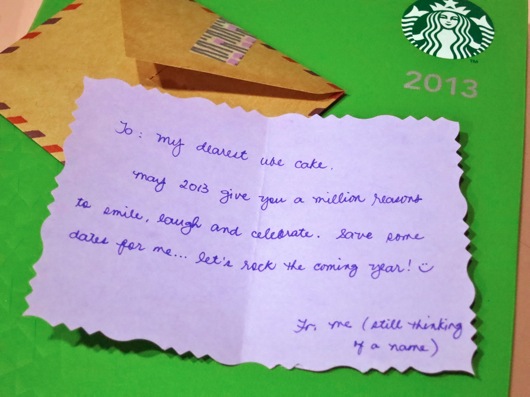 2013
To: my dearest ube cake.
may 2013 give you a million reasons
to smile, laugh and celebrate. Save some
dates for me... let's rock the coming year! :)
Fr: me (still thinking
of a name)